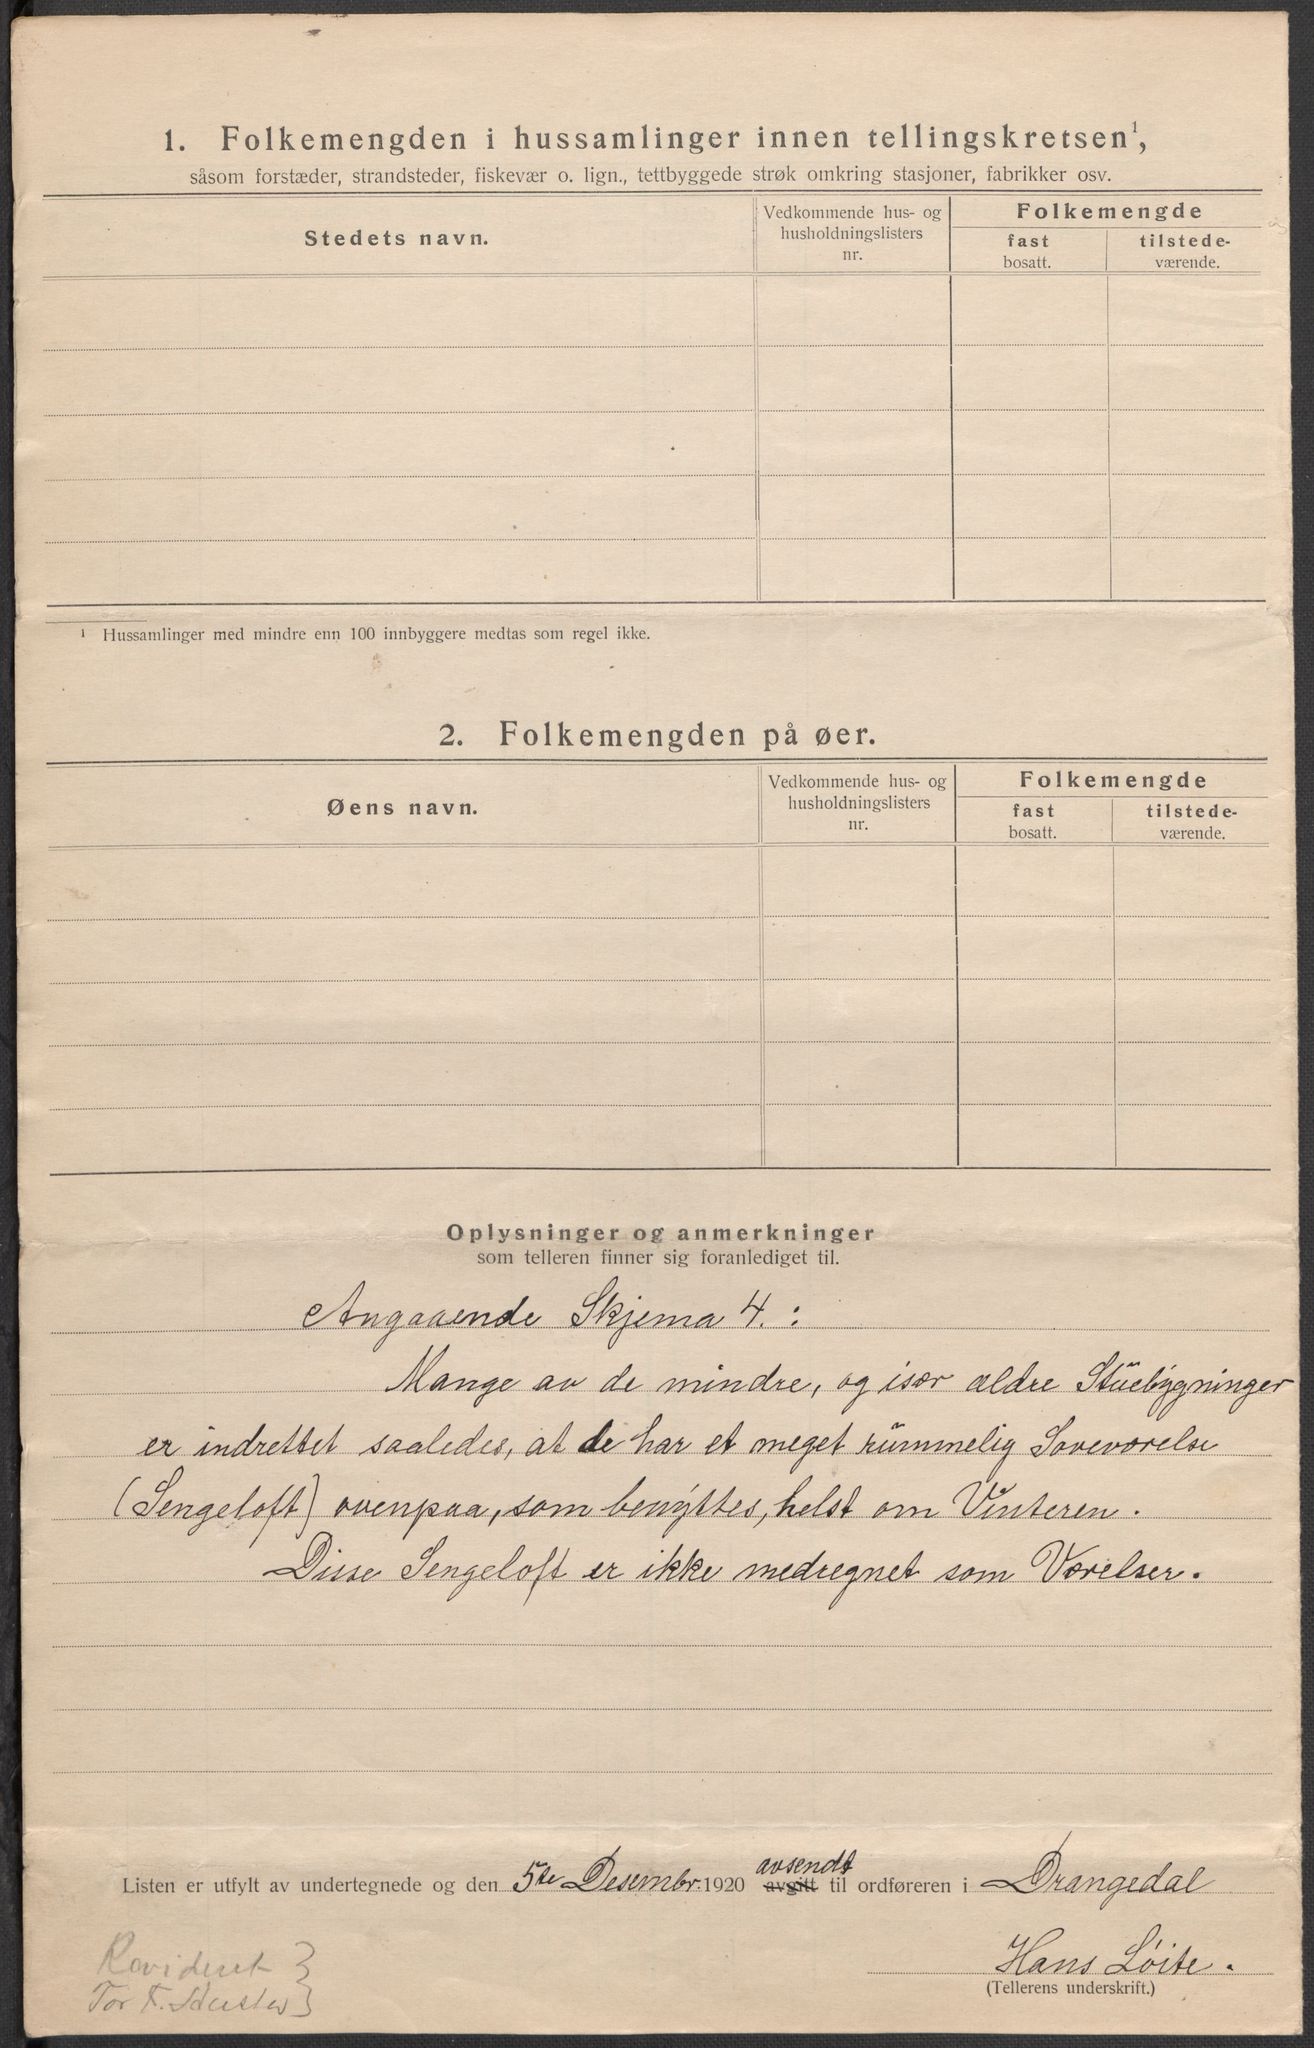 1. Folkemengden i hussamlinger innen tellingskretsen¹,
såsom forstæder, strandsteder, fiskevær o. lign., tettbyggede strøk omkring stasjoner, fabrikker osv.
Stedets navn.
Vedkommende hus- og
husholdningslisters
nr.
Folkemengde
fast
bosatt.
tilstede-
værende.
¹ Hussamlinger med mindre enn 100 innbyggere medtas som regel ikke.
2. Folkemengden på øer.
Øens navn.
Vedkommende hus- og
husholdningslisters
nr.
Folkemengde
fast
bosatt.
tilstede-
værende.
Oplysninger og anmerkninger
som telleren finner sig foranlediget til.
Angaaende Skjema 4. :
Mange av de mindre, og især ældre Stuebygninger
er indrettet saaledes, at de har et meget rummelig Soveværelse
(Sengeloft) ovenpaa, som benyttes, helst om Vinteren.
Disse Sengeloft er ikke medregnet som Værelser.
avsendt
Listen er utfylt av undertegnede og den 5te Desembr. 1920 avgitt til ordføreren i Drangedal
Hans Löite.
(Tellerens underskrift.)
Revideret }
Tor }